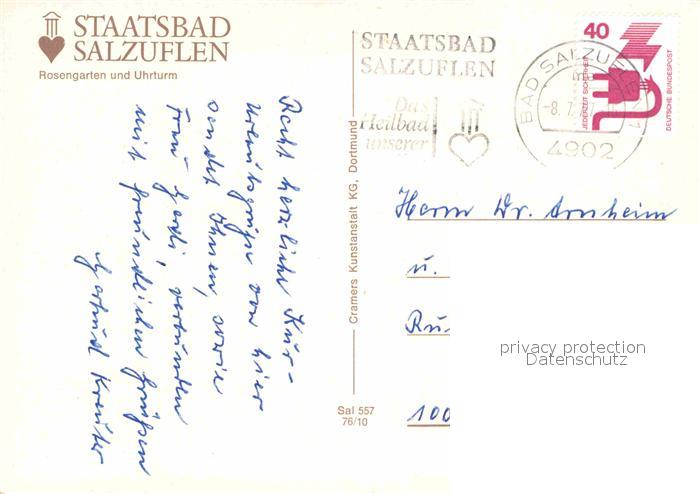 STAATSBAD
SALZUFLEN
Rosengarten und Uhrturm
Recht herzliche Kur-
Urlaubsgrüße von hier
sendet Ihnen, sowie
Frau Gerti verbunden
mit freundlichen Grüßen
Gertrud Kreuter
Cramers Kunstanstalt KG, Dortmund
Sal 557
76/10
STAATSBAD
SALZUFLEN
Das
Heilbad
unserer
BAD SALZUFLEN 1
-8.7.
4902
40
JEDERZEIT SICHERHEIT
DEUTSCHE BUNDESPOST
Herrn Dr. Arnheim
u.
Ru
100
privacy protection
Datenschutz